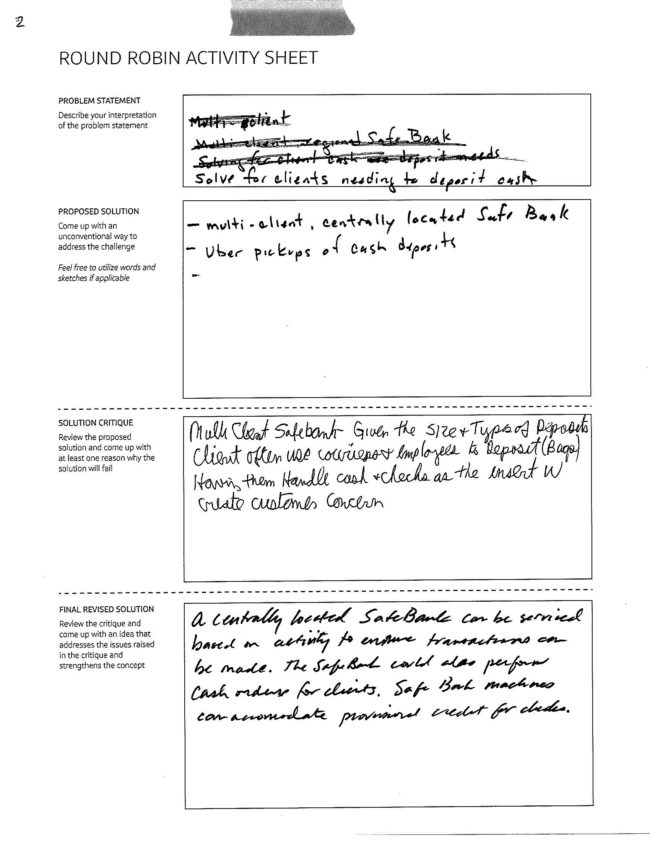 2
ROUND ROBIN ACTIVITY SHEET
PROBLEM STATEMENT
Describe your interpretation
of the problem statement
Multi-client
Multi client, regional Safe Bank
Solving for client cash deposit needs
Solve for clients needing to deposit cash
PROPOSED SOLUTION
Come up with an
unconventional way to
address the challenge
Feel free to utilize words and
sketches if applicable
- multi-client, centrally located Safe Bank
- Uber pickups of cash deposits
-
SOLUTION CRITIQUE
Review the proposed
solution and come up with
at least one reason why the
solution will fail
Multi Client Safebank - Given the size + Types of Deposits
Client often use couriers + employees to Deposit (Bags)
Having them Handle cash + checks as the insert W
create customer concern
FINAL REVISED SOLUTION
Review the critique and
come up with an idea that
addresses the issues raised
in the critique and
strengthens the concept
A centrally located SafeBank can be serviced
based on activity to ensure transactions can
be made. The SafeBank could also perform
Cash orders for clients. Safe Bank machines
can accomodate provisional credit for checks.